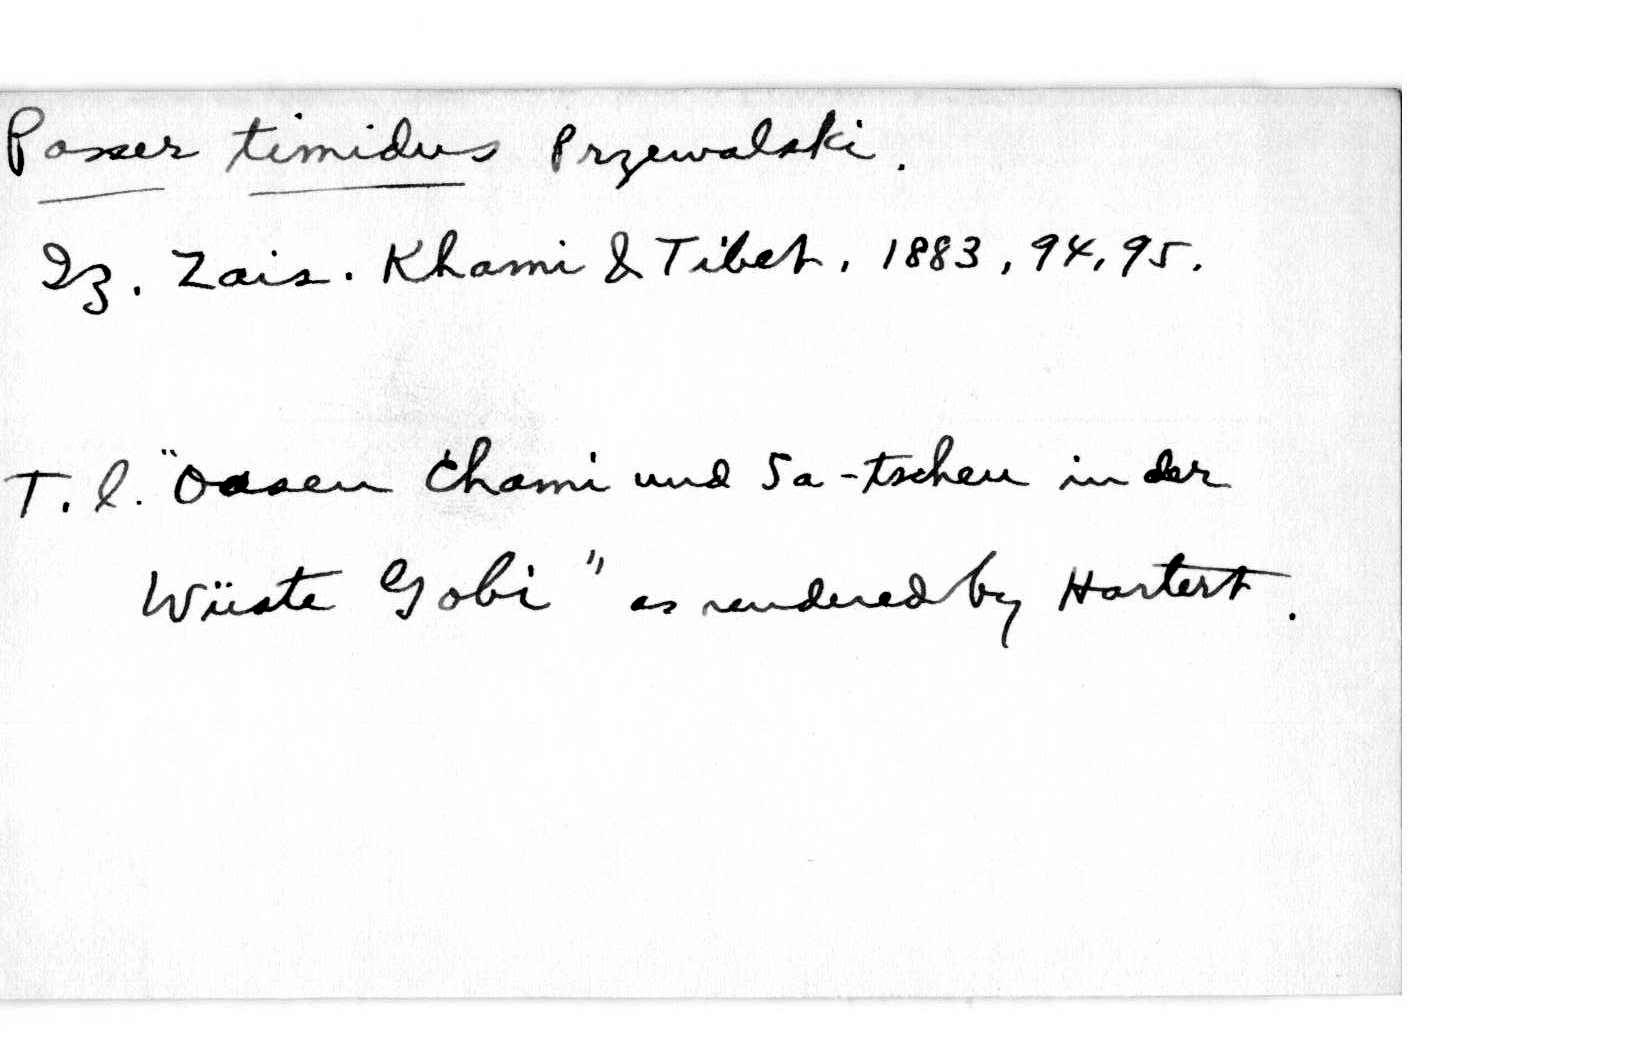 Passer timidus Przewalski.
Iz. Zais. Khami & Tibet. 1883, 94, 95.
T. l. "Oasen Chami und Sa-tscheu in der
Wüste Gobi" as rendered by Hartert.